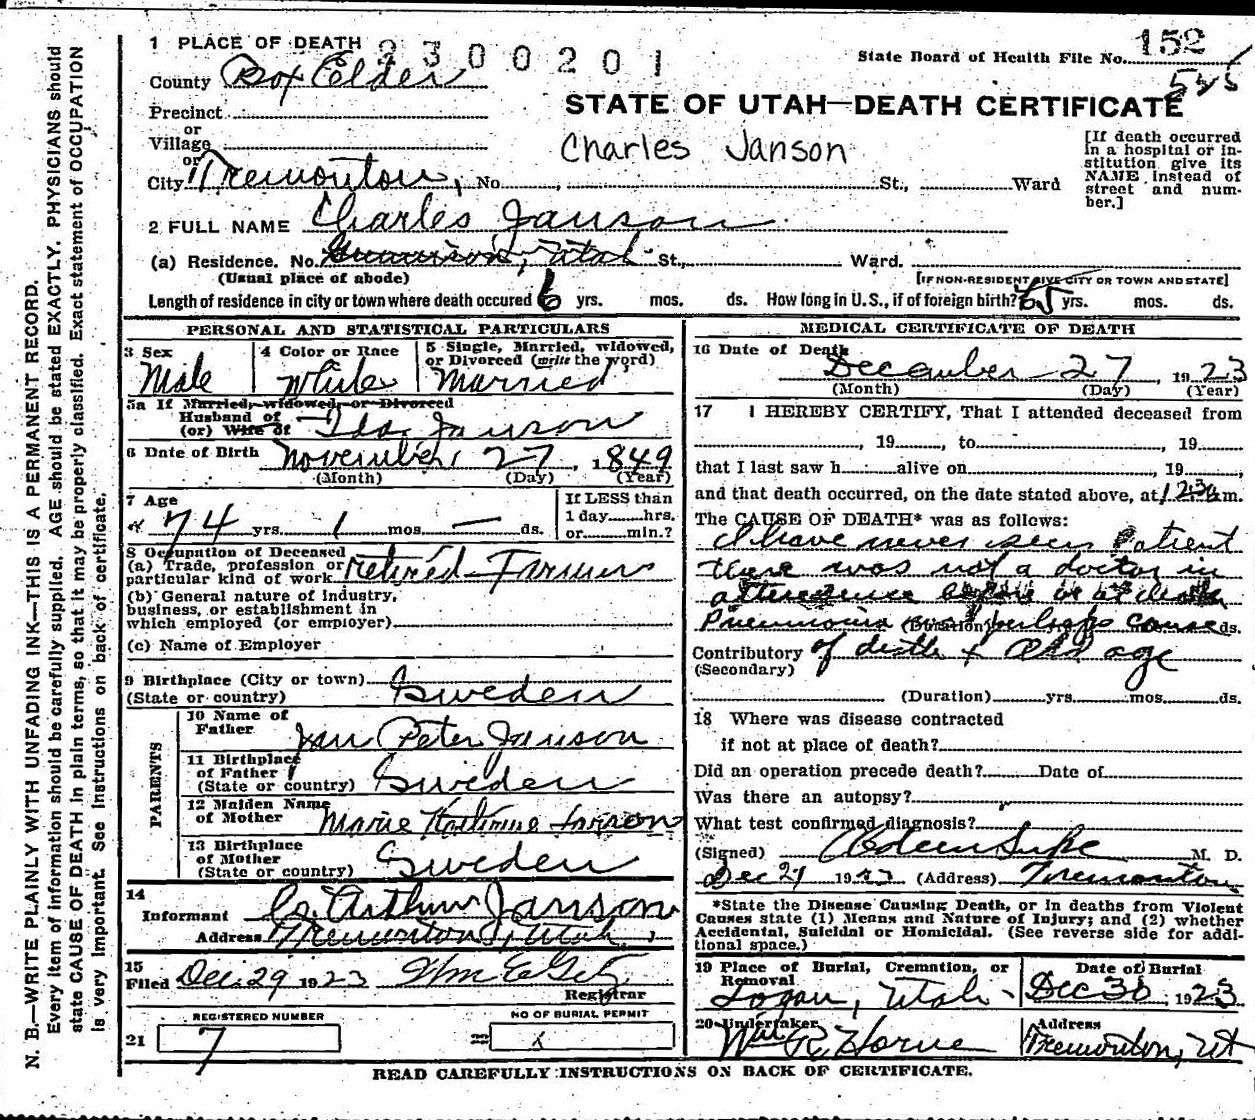 1 PLACE OF DEATH 2300201
State Board of Health File No. 152
County Box Elder
STATE OF UTAH—DEATH CERTIFICATE
Precinct
or
Village
or
City Tremonton, No. , St., Ward
Charles Janson
[If death occurred in a hospital or institution give its NAME instead of street and number.]
2 FULL NAME Charles Janson
(a) Residence. No. Utah St., Ward.
(Usual place of abode)
[IF NON-RESIDENT GIVE CITY OR TOWN AND STATE]
Length of residence in city or town where death occured 6 yrs. mos. ds. How long in U.S., if of foreign birth? yrs. mos. ds.
PERSONAL AND STATISTICAL PARTICULARS
3 Sex Male
4 Color or Race White
5 Single, Married, widowed, or Divorced (write the word) Married
5a If Married, widowed, or Divorced
Husband of
(or) Wife of Ida Janson
6 Date of Birth November 27, 1849
(Month) (Day) (Year)
7 Age 74 yrs. 1 mos. — ds.
If LESS than 1 day hrs. or min.?
8 Occupation of Deceased
(a) Trade, profession or particular kind of work retired Farmer
(b) General nature of industry, business, or establishment in which employed (or employer)
(c) Name of Employer
9 Birthplace (City or town)
(State or country) Sweden
PARENTS
10 Name of Father Jan Peter Janson
11 Birthplace of Father (State or country) Sweden
12 Maiden Name of Mother Marie
13 Birthplace of Mother (State or country) Sweden
14
Informant Arthur Janson
Address Tremonton, Utah
15
Filed Dec. 29 1923 Wm E Getz
Registrar
REGISTERED NUMBER
21 7
NO OF BURIAL PERMIT
22
MEDICAL CERTIFICATE OF DEATH
16 Date of Death December 27, 1923
(Month) (Day) (Year)
17 I HEREBY CERTIFY, That I attended deceased from
, 19 , to , 19
that I last saw h alive on , 19 ,
and that death occurred, on the date stated above, at m.
The CAUSE OF DEATH* was as follows:
I have never seen Patient
there was not a doctor in
attendence before or at death
Pneumonia was perhaps cause
(Duration) yrs. mos. ds.
Contributory of death + Old age
(Secondary)
(Duration) yrs. mos. ds.
18 Where was disease contracted
if not at place of death?
Did an operation precede death? Date of
Was there an autopsy?
What test confirmed diagnosis?
(Signed) M. D.
Dec 29 1923 (Address) Tremonton
*State the Disease Causing Death, or in deaths from Violent
Causes state (1) Means and Nature of Injury; and (2) whether
Accidental, Suicidal or Homicidal. (See reverse side for additional space.)
19 Place of Burial, Cremation, or Removal Logan, Utah
Date of Burial Dec 30, 1923
20 Undertaker Wm R. Horne
Address Tremonton, Ut
READ CAREFULLY INSTRUCTIONS ON BACK OF CERTIFICATE.
N. B.—WRITE PLAINLY WITH UNFADING INK—THIS IS A PERMANENT RECORD.
Every item of information should be carefully supplied. AGE should be stated EXACTLY. PHYSICIANS should
state CAUSE OF DEATH in plain terms, so that it may be properly classified. Exact statement of OCCUPATION
is very important. See instructions on back of certificate.